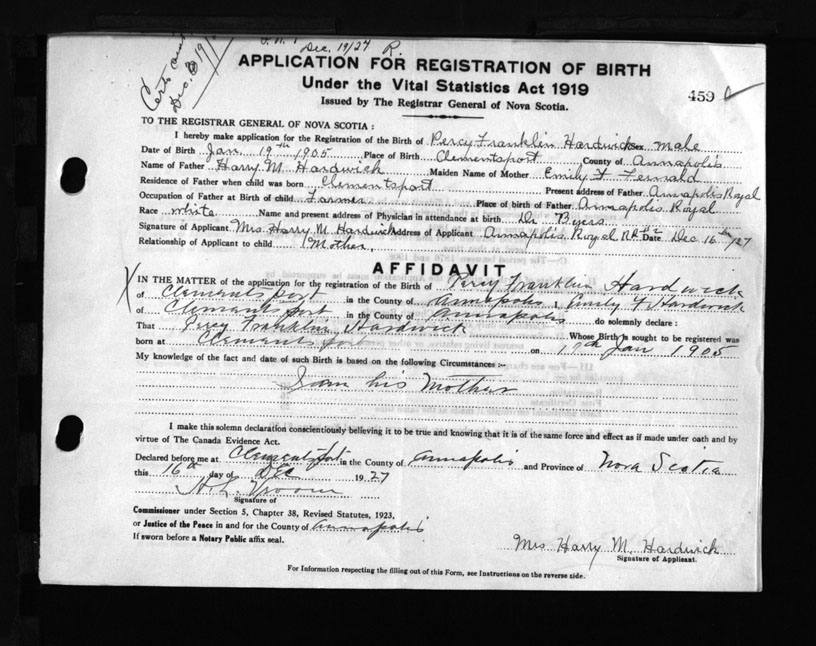 Dec. 19/27 R.
Dec. 19/
APPLICATION FOR REGISTRATION OF BIRTH
Under the Vital Statistics Act 1919
Issued by The Registrar General of Nova Scotia.
459
TO THE REGISTRAR GENERAL OF NOVA SCOTIA:
I hereby make application for the Registration of the Birth of Percy Franklin Hardwick Sex male
Date of Birth Jan. 19th 1905 Place of Birth Clementsport County of Annapolis
Name of Father Harry M. Hardwick Maiden Name of Mother Emily F.
Residence of Father when child was born Clementsport Present address of Father Annapolis Royal
Occupation of Father at Birth of Child Farmer Place of birth of Father Annapolis Royal
Race white Name and present address of Physician in attendance at birth Dr Byers
Signature of Applicant Mrs Harry M. Hardwick Address of Applicant Annapolis Royal Date Dec 16th/27
Relationship of Applicant to child Mother.
AFFIDAVIT
X IN THE MATTER of the application for the registration of the Birth of Percy Franklin Hardwick
of Clementsport in the County of Annapolis I, Emily F. Hardwick
of Clementsport in the County of Annapolis do solemnly declare:
That Percy Franklin Hardwick Whose Birth is sought to be registered was
born at Clementsport on Jan 1905
My knowledge of the fact and date of such Birth is based on the following Circumstances:-
I am his Mother
I make this solemn declaration conscientiously believing it to be true and knowing that it is of the same force and effect as if made under oath and by
virtue of The Canada Evidence Act.
Declared before me at Clementsport in the County of Annapolis and Province of Nova Scotia
this 16th day of Dec 1927
H. L. Vroom
Signature of
Commissioner under Section 5, Chapter 38, Revised Statutes, 1923,
or Justice of the Peace in and for the County of Annapolis
If sworn before a Notary Public affix seal.
Mrs Harry M. Hardwick
Signature of Applicant.
For Information respecting the filling out of this Form, see Instructions on the reverse side.